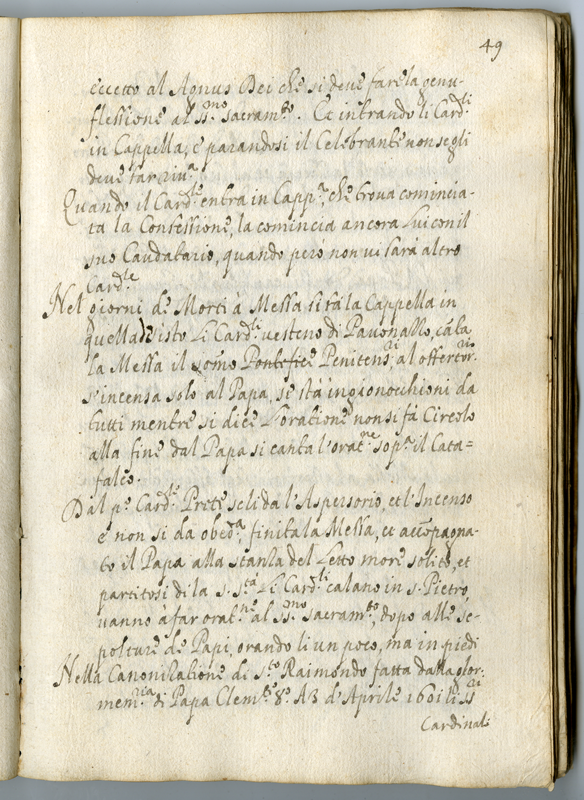 49
eccetto al Agnus Dei che si deve fare la genu-
flessione al ss.mo sacram.to. Et intrando li Card.li
in Cappella, e parandosi il Celebrante non se gli
deve far riu.a
Quando il Card.le entra in Capp.a, che trova comincia-
ta la Confessione, la comincia ancora lui con il
suo Caudatario, quando però non vi sarà altro
Card.le
Nel giorni de Morti a Messa si fà la Cappella in
quella di Sisto li Card.li vesteno di Pavonazzo, cãta
la Messa il somo Penitenz.ri al offertor.
s'incensa solo al Papa, se stà ingionocchioni da
tutti mentre si dice l'oratione non si fà Circolo
alla fine dal Papa si canta l'orat.ne sop.a il Cata=
falco.
Dal p.o Card.le Prete se li da l'Aspersorio, et l'Incenso
e non si da obed.a, finita la Messa, et accõpagna-
to il Papa alla stanza del Letto more solito, et
partitosi di la S. S.tà Li Card.li calano in s. Pietro,
vanno à far orat.ne al ss.mo sacram.to, dopo alle se-
polture de Papi, orando li un poco, ma in piedi
Nella Canonizatione di s.to Raimondo fatta dalla glor.
mem.ria di Papa Clem.te 8.o A3 d'Aprile 1601 li ss.ri
Cardinali